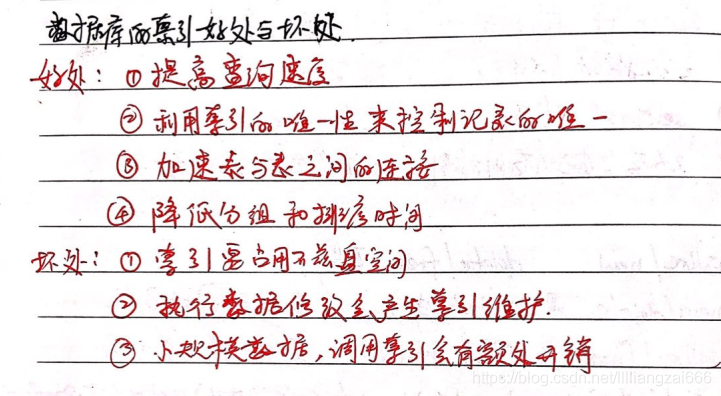 数据库的索引好处与坏处.
好处：① 提高查询速度
② 利用索引的唯一性来控制记录的唯一
③ 加速表与表之间的连接
④ 降低分组和排序时间
坏处：① 索引要占用磁盘空间
② 执行数据修改会产生索引维护.
③ 小规模数据，调用索引会有额外开销
https://blog.csdn.net/lllliangzai666